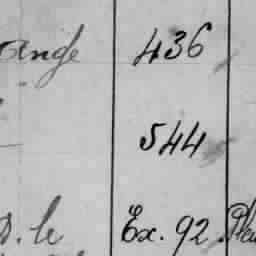 ange 436
544
D. le Ex. 92